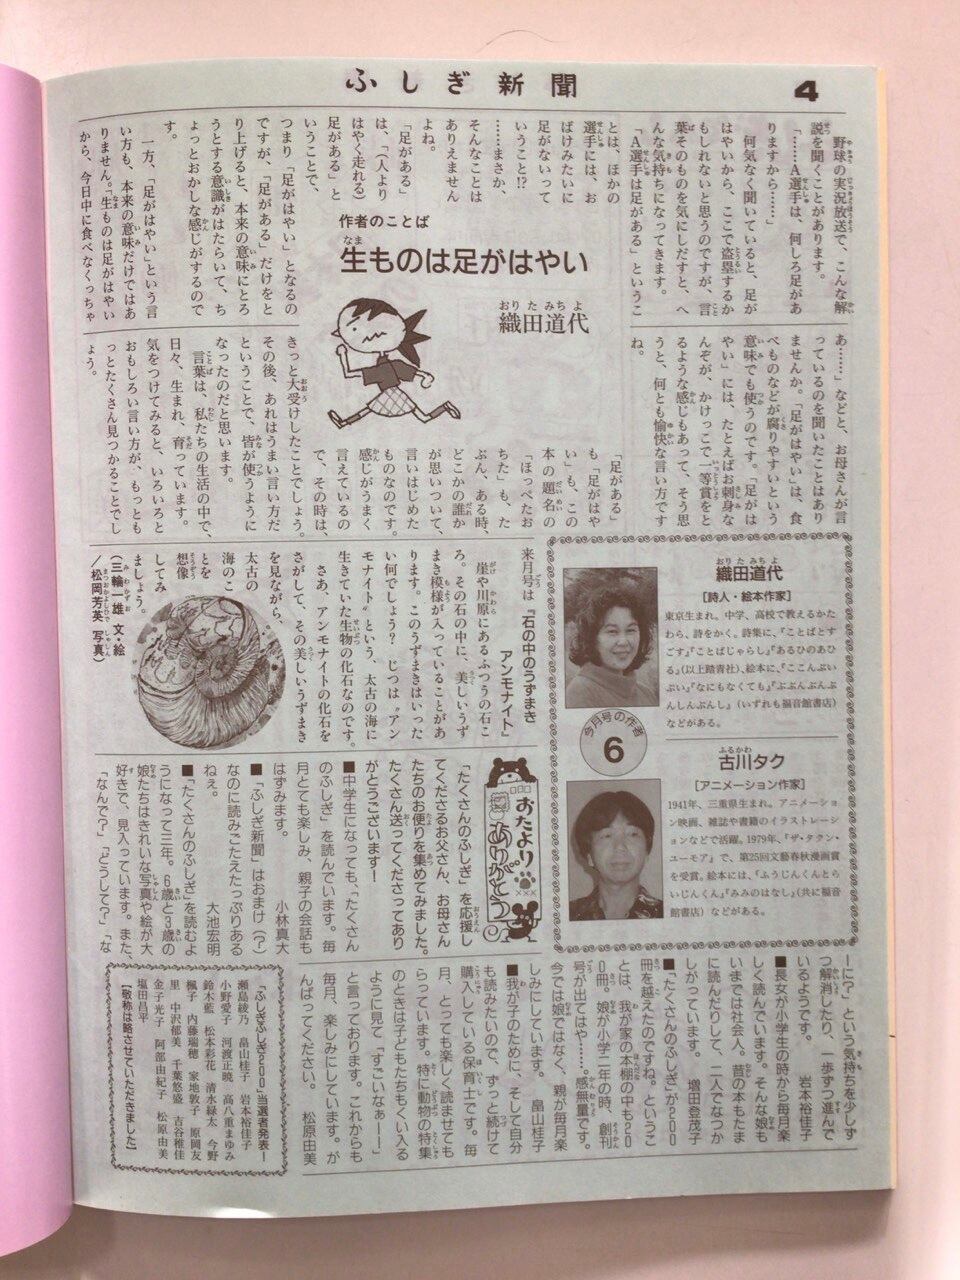 ふしぎ新聞
4
野球の実況放送で、こんな解
説を聞くことがあります。
「……A選手は、何しろ足があ
りますから……」
何気なく聞いていると、足が
はやいから、ここで盗塁するか
もしれないと思うのですが、言
葉そのものを気にしだすと、へ
んな気持ちになってきます。
「A選手は足がある」というこ
とは、ほかの
選手には、お
ばけみたいに
足がないって
いうこと!?
……まさか、
そんなことは
ありえません
よね。
「足がある」
は、「(人より
はやく走れる)
足がある」と
いうことで、
つまり「足がはやい」となるの
ですが、「足がある」だけをと
り上げると、本来の意味にとろ
うとする意識がはたらいて、ち
ょっとおかしな感じがするので
す。
一方、「足がはやい」という言
い方も、本来の意味だけではあ
りません。「生ものは足がはやい
から、今日中に食べなくっちゃ
作者のことば
生ものは足がはやい
織田道代
あ……」などと、お母さんが言
っているのを聞いたことはあり
ませんか。「足がはやい」は、食
べものなどが腐りやすいという
意味でも使うのです。「足がは
やい」には、たとえばお刺身な
んぞが、かけっこで一等賞をと
るような感じもあって、そう思
うと、何とも愉快な言い方です
ね。
「足がある」
も「足がはや
い」も、この
本の題名の
「ほっぺたお
ちた」も、た
ぶん、ある時、
どこかの誰か
が思いついて、
言いはじめた
ものなのです。
感じがうまく
言えているの
で、その時は、
きっと大受けしたことでしょう。
その後、あれはうまい言い方だ
ということで、皆が使うように
なったのだと思います。
言葉は、私たちの生活の中で、
日々、生まれ、育っています。
気をつけてみると、いろいろと
おもしろい言い方が、もっとも
っとたくさん見つかることでし
ょう。
織田道代
[詩人・絵本作家]
東京生まれ。中学、高校で教えるかた
わら、詩をかく。詩集に、『ことばとす
ごす』『ことばじゃらし』『あるひのあひ
る』(以上踏青社)、絵本に、『ここんぷいぷ
い』『なにもなくても』『ぷぷんぷんぷ
んしんぶんし』(いずれも福音館書店)
などがある。
今月号の作者
6
古川タク
[アニメーション作家]
1941年、三重県生まれ。アニメーショ
ン映画、雑誌や書籍のイラストレーシ
ョンなどで活躍。1979年、『ザ・タクン・
ユーモア』で、第25回文藝春秋漫画賞
を受賞。絵本には、『ふうじんくんとら
いじんくん』『みみのはなし』(共に福音
館書店)などがある。
来月号は『石の中のうずまき
アンモナイト』
崖や川原にあるふつうの石こ
ろ。その石の中に、美しいうず
まき模様が入っていることがあ
ります。このうずまきはいった
い何でしょう？じつは〝アン
モナイト〟という、太古の海に
生きていた生物の化石なのです。
さあ、アンモナイトの化石を
さがして、その美しいうずまき
を見ながら、
太古の
海のこ
とを
想像
してみ
ましょう。
(三輪一雄 文・絵
/松岡芳英 写真)
おたより
ありがとう
「たくさんのふしぎ」を応援し
てくださるお父さん、お母さん
たちのお便りを集めてみました。
たくさん送ってくださってあり
がとうございます!
■中学生になっても、「たくさん
のふしぎ」を読んでいます。毎
月とても楽しみ、親子の会話も
はずみます。 小林真大
■「ふしぎ新聞」はおまけ(?)
なのに読みごたえたっぷりある
ねぇ。 大池宏明
■「たくさんのふしぎ」を読むよ
うになって三年。6歳と3歳の
娘たちはきれいな写真や絵が大
好きで、見入っています。また、
「なんで?」「どうして?」「な
ーに?」という気持ちを少しず
つ解消したり、一歩ずつ進んで
いるようです。 岩本裕佳子
■長女が小学生の時から毎月楽
しく読んでいます。そんな娘も
いまでは社会人。昔の本もたま
に読んだりして、二人でなつか
しがっています。 増田登茂子
■「たくさんのふしぎ」が200
冊を越えたのですね。というこ
とは、我が家の本棚の中も20
0冊。娘が小学二年の時、創刊
号が出てはや……。感無量です。
今では娘ではなく、親が毎月楽
しみにしています。 畠山桂子
■我が子のために、そして自分
も読みたいので、ずっと続けて
購入している保育士です。毎
月、とっても楽しく読ませても
らっています。特に動物の特集
のときは子どもたちもくい入る
ように見て「すごいなぁー!」
と言っております。これからも
毎月、楽しみにしています。が
んばってください。 松原由美
「ふしぎふしぎ200」当選者発表!
瀬島綾乃 畠山桂子 岩本裕佳子
小野愛子 河渡正暁 高八重まゆみ
鈴木藍 松本彩花 清水緑太 今野
楓子 内藤瑞穂 家地敦子 原岡友
里 中沢郁美 千葉悠盛 古谷稚佳
金子光子 阿部由紀子 松原由美
塩田昌平
[敬称は略させていただきました]